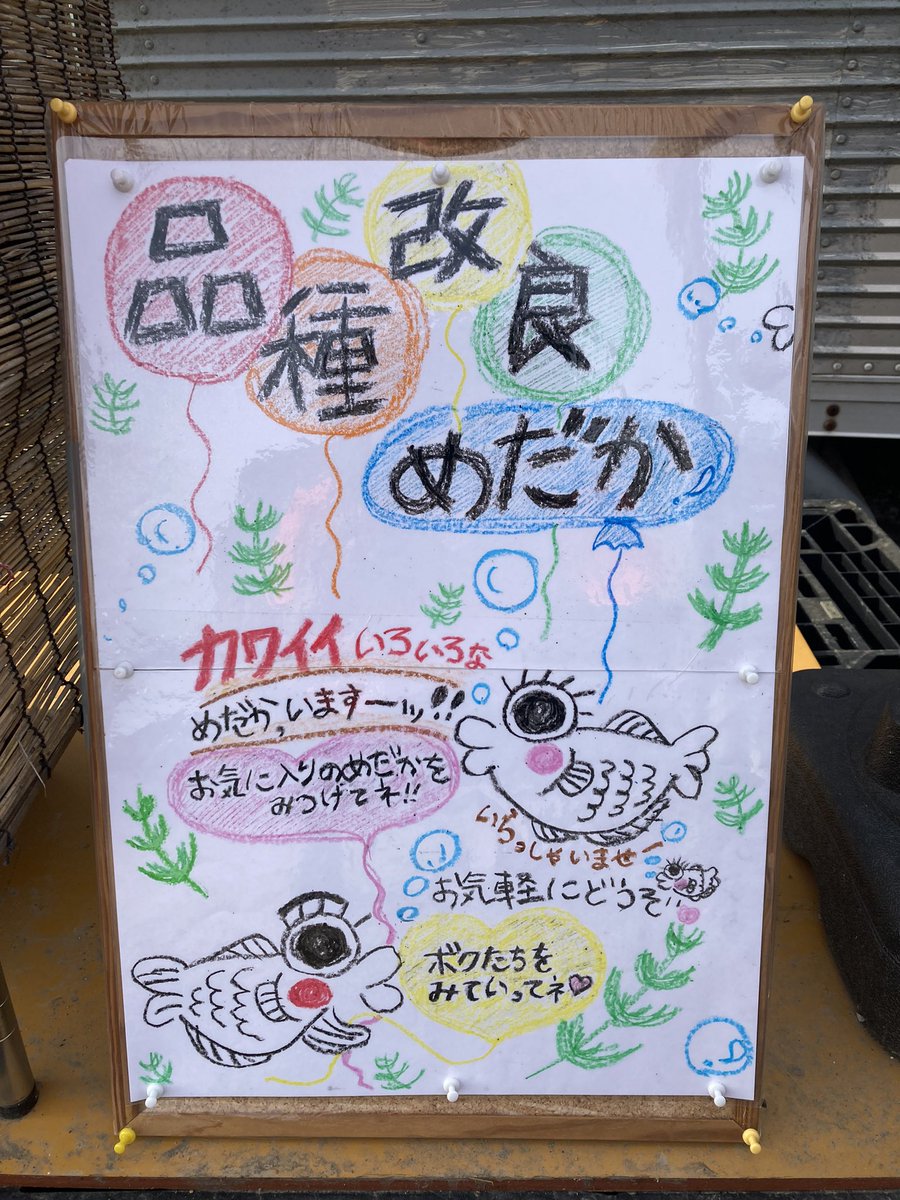 品種改良
めだか
カワイイいろいろな
めだか、いますーッ!!
お気に入りのめだかを
みつけてネ!!
いらっしゃいませー
お気軽にどうぞ!!
ボクたちを
みていってネ♥